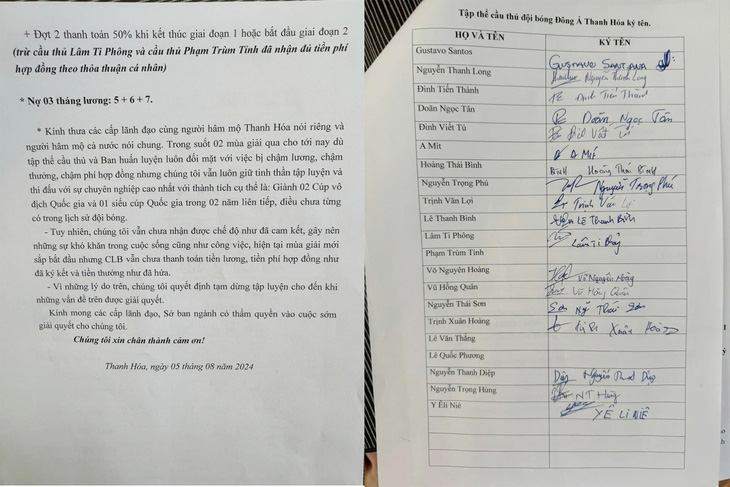 + Đợt 2 thanh toán 50% khi kết thúc giai đoạn 1 hoặc bắt đầu giai đoạn 2
(trừ cầu thủ Lâm Ti Phông và cầu thủ Phạm Trùm Tỉnh đã nhận đủ tiền phí
hợp đồng theo thỏa thuận cá nhân)
* Nợ 03 tháng lương: 5 + 6 + 7.
* Kính thưa các cấp lãnh đạo cùng người hâm mộ Thanh Hóa nói riêng và
người hâm mộ cả nước nói chung. Trong suốt 02 mùa giải qua cho tới nay dù
tập thể cầu thủ và Ban huấn luyện luôn đối mặt với việc bị chậm lương, chậm
thưởng, chậm phí hợp đồng nhưng chúng tôi vẫn luôn giữ tinh thần tập luyện và
thi đấu với sự chuyên nghiệp cao nhất với thành tích cụ thể là: Giành 02 Cúp vô
địch Quốc gia và 01 siêu cúp Quốc gia trong 02 năm liên tiếp, điều chưa từng
có trong lịch sử đội bóng.
- Tuy nhiên, chúng tôi vẫn chưa nhận được chế độ như đã cam kết, gây nên
những sự khó khăn trong cuộc sống cũng như công việc, hiện tại mùa giải mới
sắp bắt đầu nhưng CLB vẫn chưa thanh toán tiền lương, tiền phí hợp đồng như
đã ký kết và tiền thưởng như đã hứa.
- Vì những lý do trên, chúng tôi quyết định tạm dừng tập luyện cho đến khi
những vấn đề trên được giải quyết.
Kính mong các cấp lãnh đạo, Sở ban ngành có thẩm quyền vào cuộc sớm
giải quyết cho chúng tôi.
Chúng tôi xin chân thành cảm ơn!
Thanh Hóa, ngày 05 tháng 08 năm 2024
Tập thể cầu thủ đội bóng Đông Á Thanh Hóa ký tên.
HỌ VÀ TÊN KÝ TÊN
Gustavo Santos GUSTAVO SANTANA
Nguyễn Thanh Long Nguyễn Thanh Long
Đinh Tiến Thành Đinh Tiến Thành
Doãn Ngọc Tân Doãn Ngọc Tân
Đinh Viết Tú Đinh Viết Tú
A Mít A Mít
Hoàng Thái Bình Bình Hoàng Thái Bình
Nguyễn Trọng Phú Nguyễn Trọng Phú
Trịnh Văn Lợi Trịnh Văn Lợi
Lê Thanh Bình Lê Thanh Bình
Lâm Ti Phông Lâm Ti Phông
Phạm Trùm Tỉnh
Võ Nguyên Hoàng Võ Nguyên Hoàng
Vũ Hồng Quân Vũ Hồng Quân
Nguyễn Thái Sơn Sơn Ng Thái Sơn
Trịnh Xuân Hoàng Xuân Hoàng
Lê Văn Thắng
Lê Quốc Phương
Nguyễn Thanh Diệp Diệp Nguyễn Thanh Diệp
Nguyễn Trọng Hùng NT Hùng
Y Êli Niê Y Ê LI NIÊ